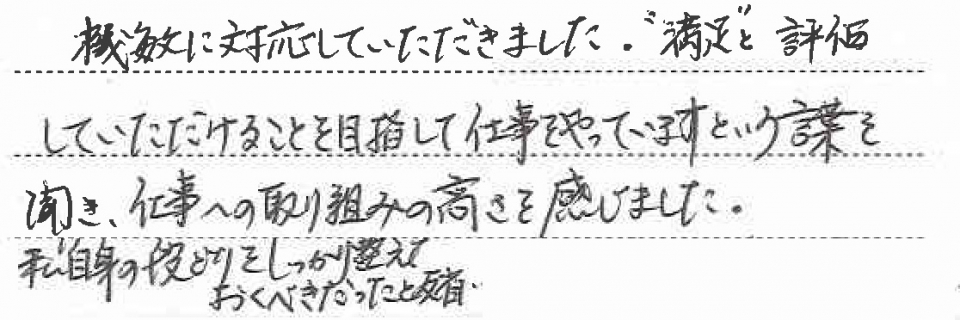 機敏に対応していただきました。"満足"と評価
していただけることを目指して仕事をやっていますという言葉を
聞き、仕事への取り組みの高さを感じました。
私自身の段どりをしっかり整えて
おくべきだったと反省.